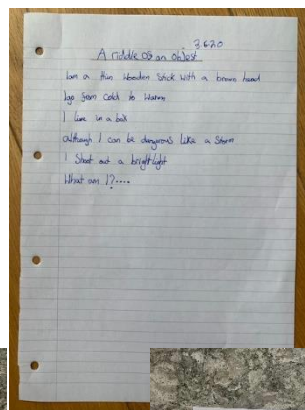 3.6.20
A riddle as an object
I am a thin wooden stick with a brown head
I go from cold to warm
I live in a box
although I can be dangerous like a storm
I shoot out a bright light
What am I?....